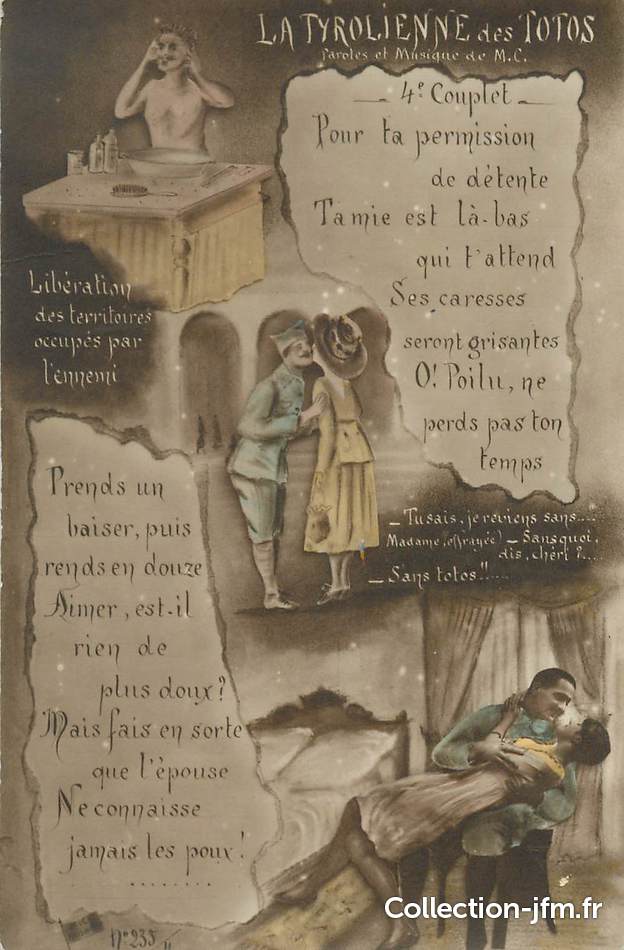 LA TYROLIENNE des TOTOS
Paroles et Musique de M.C.
4e Couplet
Pour ta permission
de détente
Tamie est là-bas
qui t'attend
Ses caresses
seront grisantes
O! Poilu, ne
perds pas ton
temps
Libération
des territoires
occupés par
l'ennemi
_ Tu sais, je reviens sans....
Madame (effrayée) _ Sans quoi,
dis, chéri ?....
_ Sans totos!!....
Prends un
baiser, puis
rends en douze
Aimer, est-il
rien de
plus doux?
Mais fais en sorte
que l'épouse
Ne connaisse
jamais les poux!
........
N° 235
Collection-jfm.fr